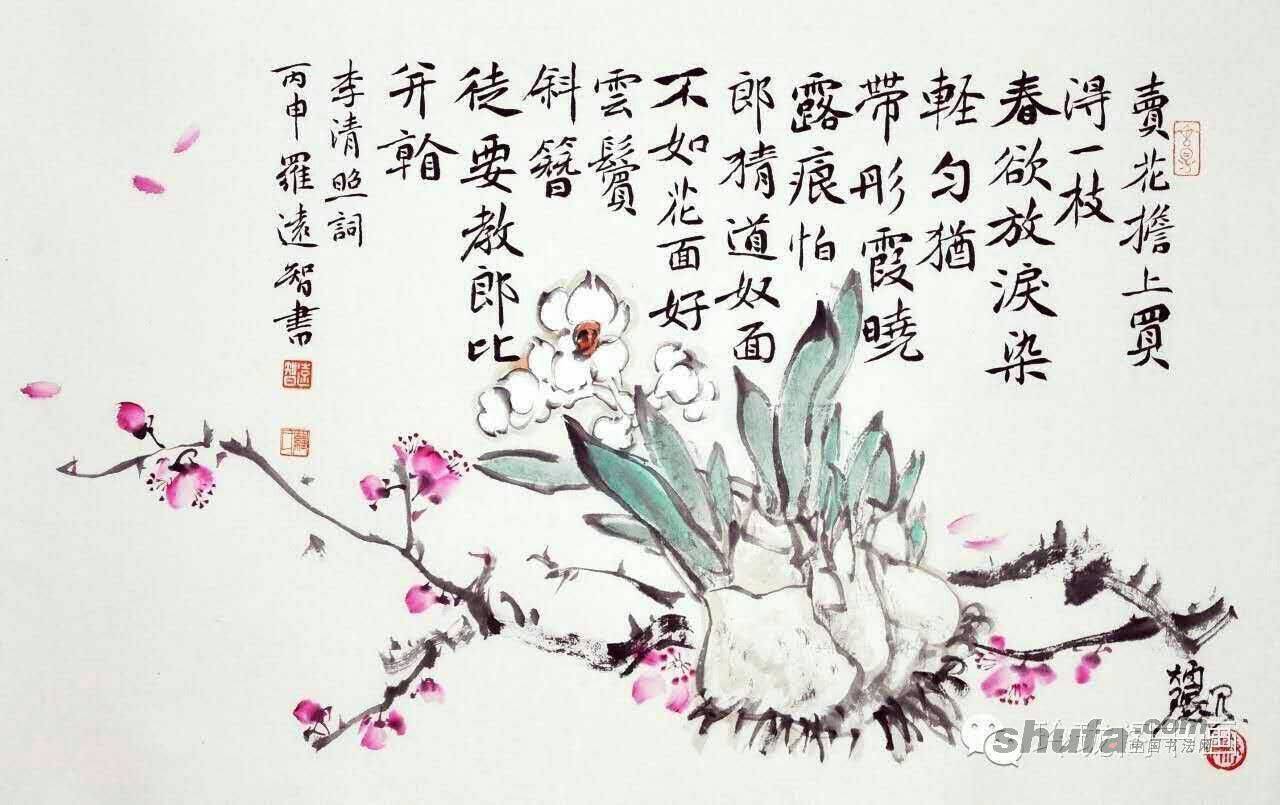 賣花擔上買
得一枝
春欲放淚染
軽勻猶
帶彤霞曉
露痕怕
郎猜道奴面
不如花面好
雲鬢
斜簪
徒要教郎比
并看
李清照詞
丙申羅遠智書
shufa.com
中国书法网